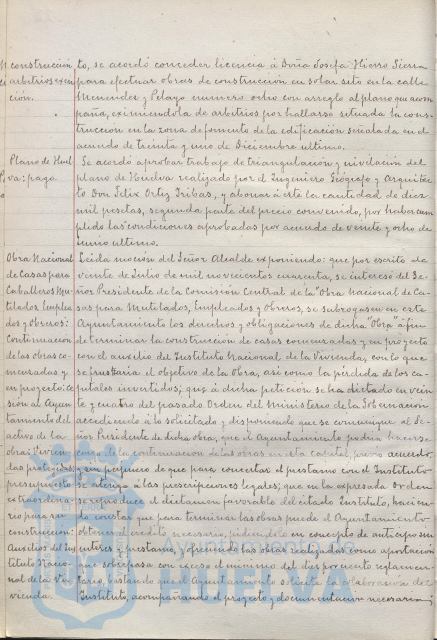 construcción
arbitrios exen
ción.
to, se acordó conceder licencia á Doña Josefa Hierro Sierra
para efectuar obras de construcción en solar sito en la calle
Menendez y Pelayo numero ocho con arreglo al plano que acom
paña, eximiendola de arbitrios por hallarse situada la cons-
truccion en la zona de fomento de la edificación señalada en el
acuerdo de treinta y uno de Diciembre ultimo.
Plano de Huel
va: pago
Se acordó aprobar trabajo de triangulación y nivelación del
plano de Huelva realizado por el Ingeniero Geógrafo y Arquitec
to Don Felix Ortiz Iribas, y abonar á este la cantidad de diez
mil pesetas, segunda parte del precio convenido, por haber cum
plido las condiciones aprobadas por acuerdo de veinte y ocho de
Junio ultimo.
Obra Nacional
de Casas para
Caballeros Mu-
tilados, Emplea
dos y Obreros:
Continuacion
de las obras co-
menzadas y
en proyecto: ce
sión al Ayun
tamiento del
activo de la
obra: Vivien
das protegidas
presupuesto
extraordina-
rio para su
construcción:
Auxilios del Ins
tituto Nacio-
nal de la Vi-
vienda.
Leida moción del Señor Alcalde exponiendo: que por escrito de
veinte de Julio de mil novecientos cuarenta, se intereso del Se-
ñor Presidente de la Comisión Central de la "Obra Nacional de Ca-
sas para Mutilados, Empleados y Obreros, se subrogase en este
Ayuntamiento los derechos y obligaciones de dicha "Obra" á fin
de terminar la construcción de casas comenzadas y en proyecto
con el auxilio del Instituto Nacional de la Vivienda, con lo que
se frustraria el objetivo de la Obra, así como la pérdida de los ca-
pitales invertidos; que á dicha petición se ha dictado en vein
te y cuatro del pasado Orden del Ministerio de la Gobernación
accediendo á lo solicitado y disponiendo que se comunique al Se-
ñor Presidente de dicha obra, que el Ayuntamiento podria hacerse
cargo de la continuacion de las obras en esta capital, previo acuerdo,
y sin perjuicio de que para concertar el prestamo con el Instituto
se atenga á las prescripciones legales; que en la expresada Orden
se reproduce el dictamen favorable del citado Instituto, hacien-
do constar que para terminar las obras puede el Ayuntamiento
obtener el credito necesario, pidiendo en concepto de anticipo sin
interes y prestamo, y ofreciendo las obras realizadas como aportación
que sobrepasa con exceso el minimo del diez por ciento reglamen-
tario, bastando que el Ayuntamiento solicite la colaboración del
Instituto, acompañando el proyecto y documentacion necesarios;